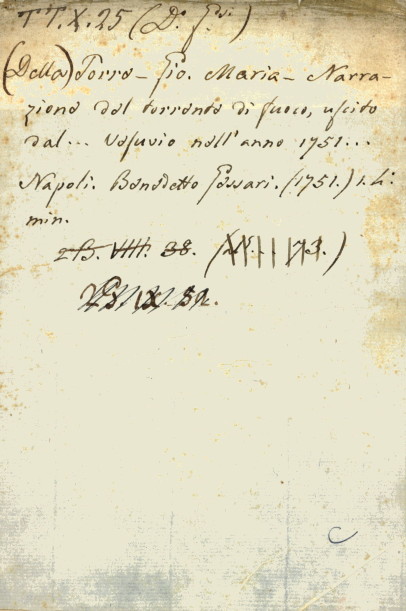 TT.X.25 (Dº. Fsi.)
(Della) Torre - Gio. Maria - Narra-
zione del torrente di fuoco, uscito
dal... Vesuvio nell'anno 1751...
Napoli. Benedetto Gessari. (1751.) 1. 4:
min.
VIIII. 38.